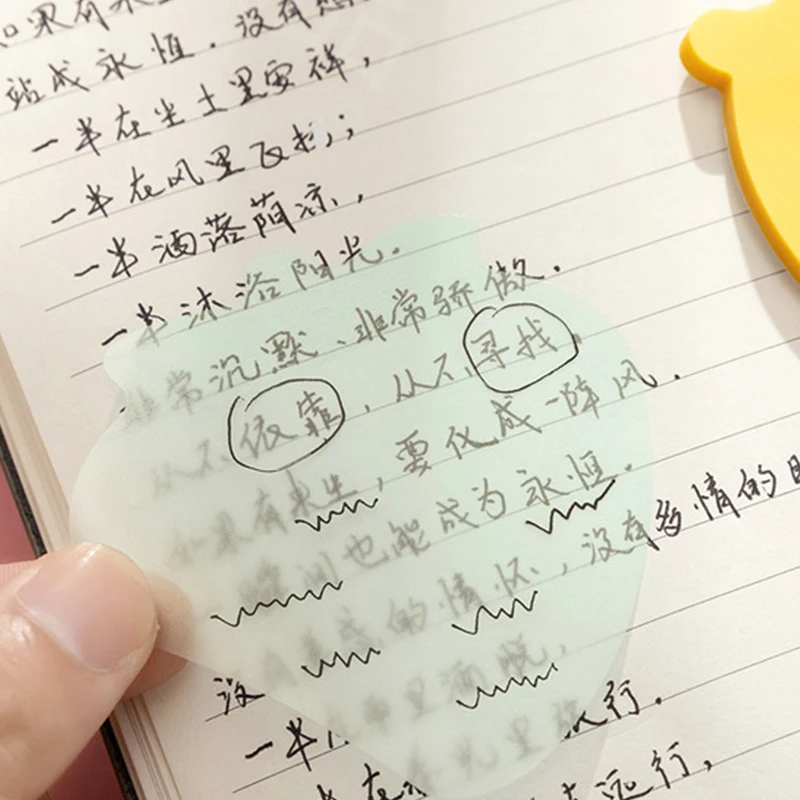 如果有来
站成永恒。没有悲
一半在尘土里安祥，
一半在风里飞扬；
一半洒落荫凉，
一半沐浴阳光。
非常沉默、非常骄傲。
从不依靠，从不寻找。
如果有来生，要化成一阵风。
瞬间也能成为永恒。
没有善感的情怀，没有多情的
一半在雨里洒脱，
一半在春光里旅行。
远行，